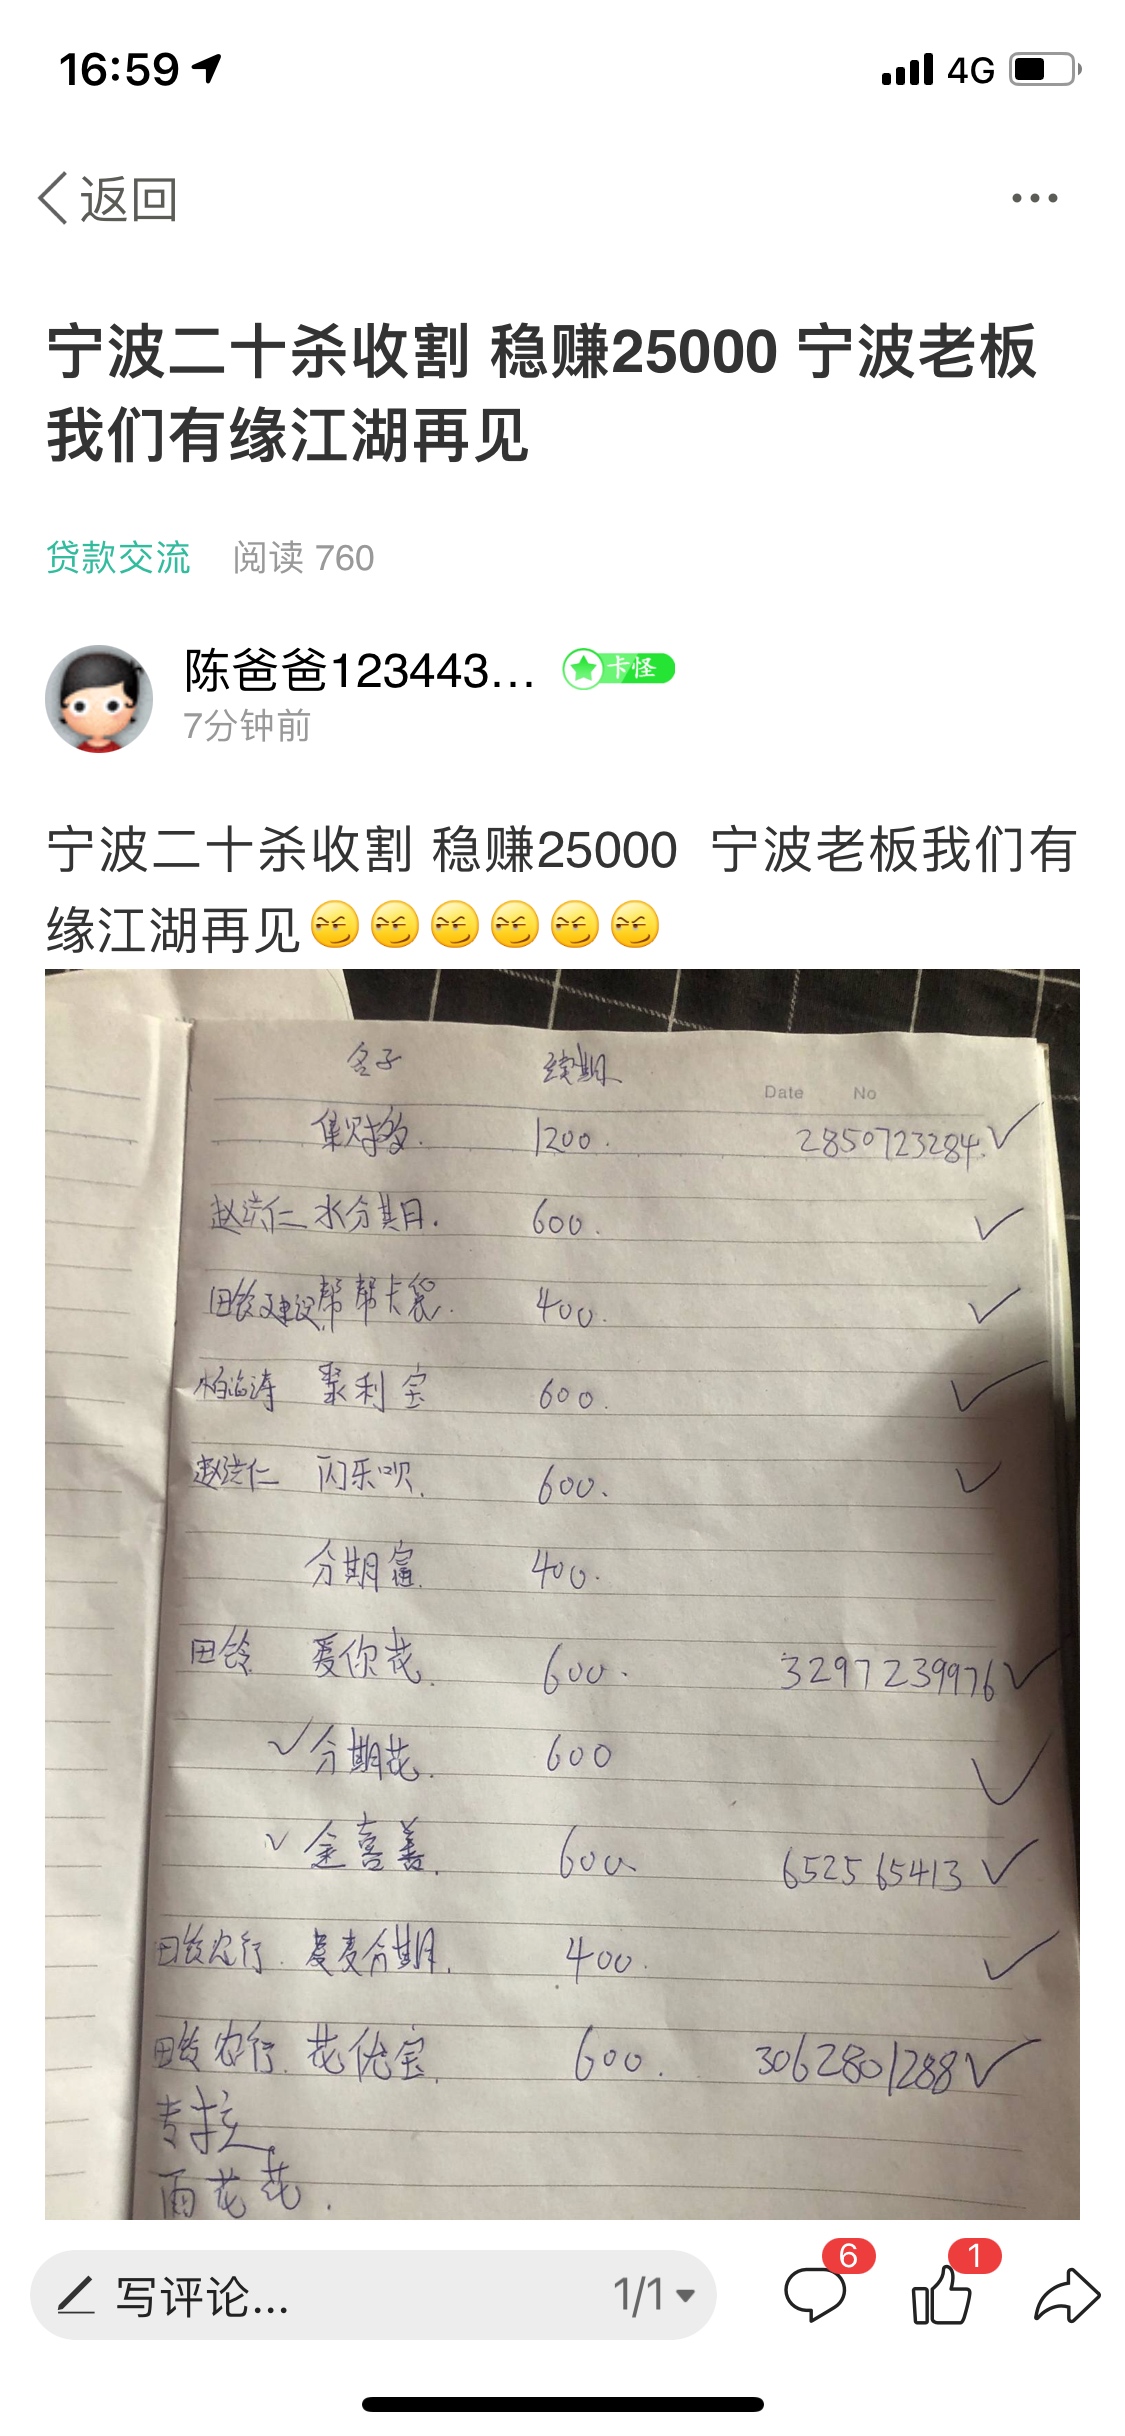 16:59
4G
返回
宁波二十杀收割 稳赚25000 宁波老板
我们有缘江湖再见
贷款交流 阅读 760
陈爸爸123443... 卡怪
7分钟前
宁波二十杀收割 稳赚25000 宁波老板我们有
缘江湖再见
名子 续期
Date No
集财多. 1200. 2850723284.
水分其日. 600.
田铃 建设 帮帮卡袋. 400.
聚利宝 600.
闪乐呗. 600.
分期富. 400.
田铃 爱你花. 600. 3297239976
分期花. 600
金喜善. 600. 652565413
田铃农行. 荞麦分期. 400.
田铃农行. 花优宝. 600. 3062801288
雨花花.
写评论... 1/1 6 1